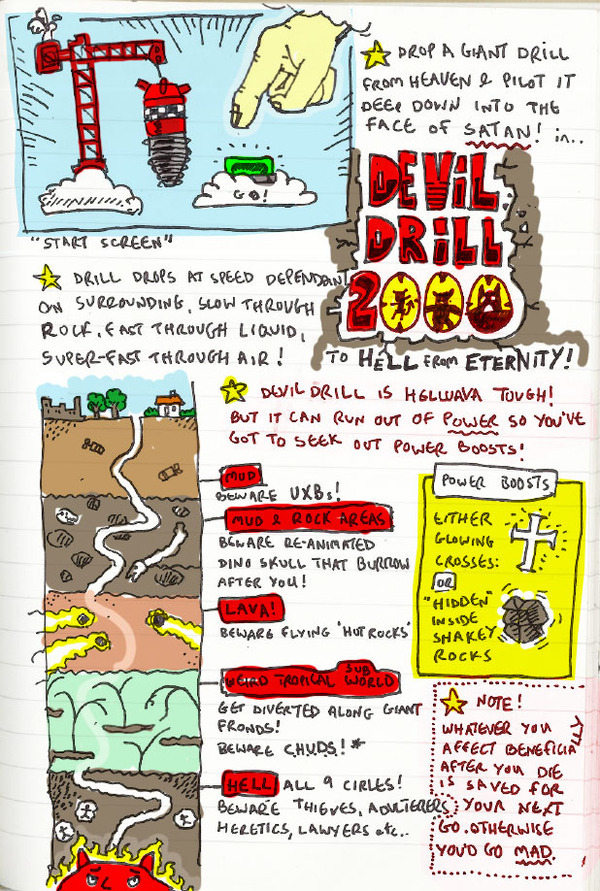 DROP A GIANT DRILL
FROM HEAVEN & PILOT IT
DEEP DOWN INTO THE
FACE OF SATAN! in..
GO!
"START SCREEN"
DEVIL
DRILL
2000
TO HELL FROM ETERNITY!
DRILL DROPS AT SPEED DEPENDANT
ON SURROUNDING, SLOW THROUGH
ROCK, FAST THROUGH LIQUID,
SUPER-FAST THROUGH AIR!
DEVIL DRILL IS HELLUVA TOUGH!
BUT IT CAN RUN OUT OF POWER SO YOU'VE
GOT TO SEEK OUT POWER BOOSTS!
MUD
BEWARE UXBs!
MUD & ROCK AREAS
BEWARE RE-ANIMATED
DINO SKULL THAT BURROW
AFTER YOU!
LAVA!
BEWARE FLYING 'HOT ROCKS'
WEIRD TROPICAL SUB WORLD
GET DIVERTED ALONG GIANT
FRONDS!
BEWARE C.H.U.D.S!*
HELL ALL 9 CIRLES!
BEWARE THIEVES, ADULTERERS
HERETICS, LAWYERS etc..
POWER BOOSTS
EITHER
GLOWING
CROSSES:
OR
"HIDDEN"
INSIDE
SNAKEY
ROCKS
NOTE!
WHATEVER YOU
AFFECT BENEFICIALLY
AFTER YOU DIE
IS SAVED FOR
YOUR NEXT
GO. OTHERWISE
YOU'D GO MAD.